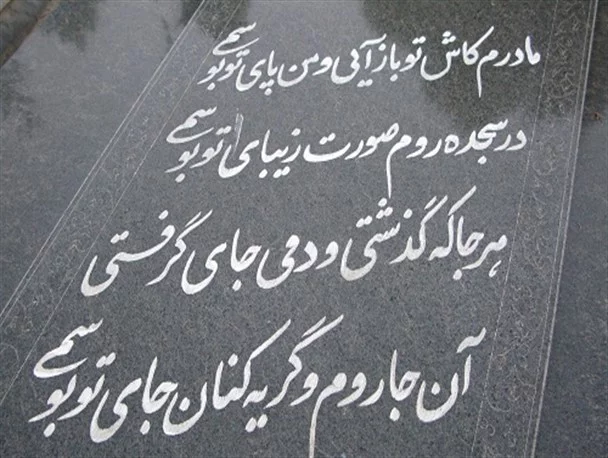 مادرم کاش تو باز آیی و من پای تو بوسم
در سجده روم صورت زیبای تو بوسم
هر جا که گذشتی و دمی جای گرفتی
آن جا روم و گریه کنان جای تو بوسم